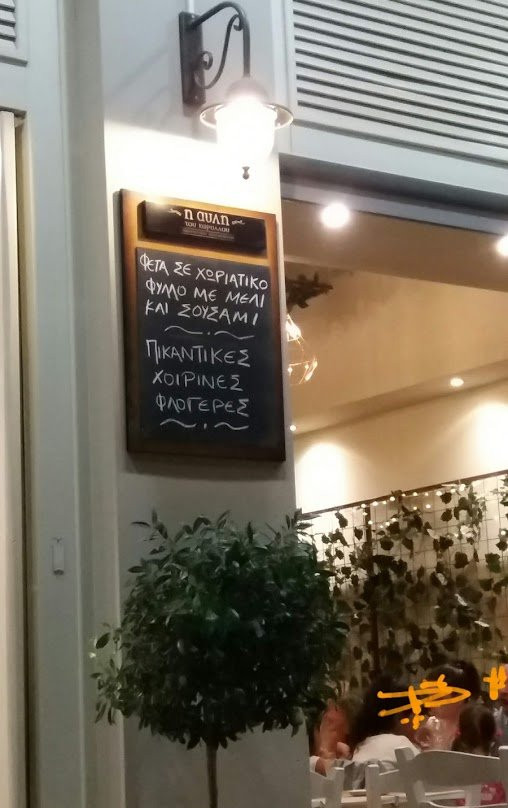 η αυλη
του καφαλλου
ΦΕΤΑ ΣΕ ΧΩΡΙΑΤΙΚΟ
ΦΥΛΛΟ ΜΕ ΜΕΛΙ
ΚΑΙ ΣΟΥΣΑΜΙ
ΠΙΚΑΝΤΙΚΕΣ
ΧΟΙΡΙΝΕΣ
ΦΛΟΓΕΡΕΣ